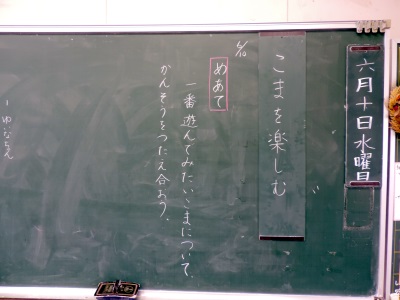 六月十日水曜日
こまを楽しむ
6/10
めあて
一番遊んでみたいこまについて、
かんそうをつたえ合おう。